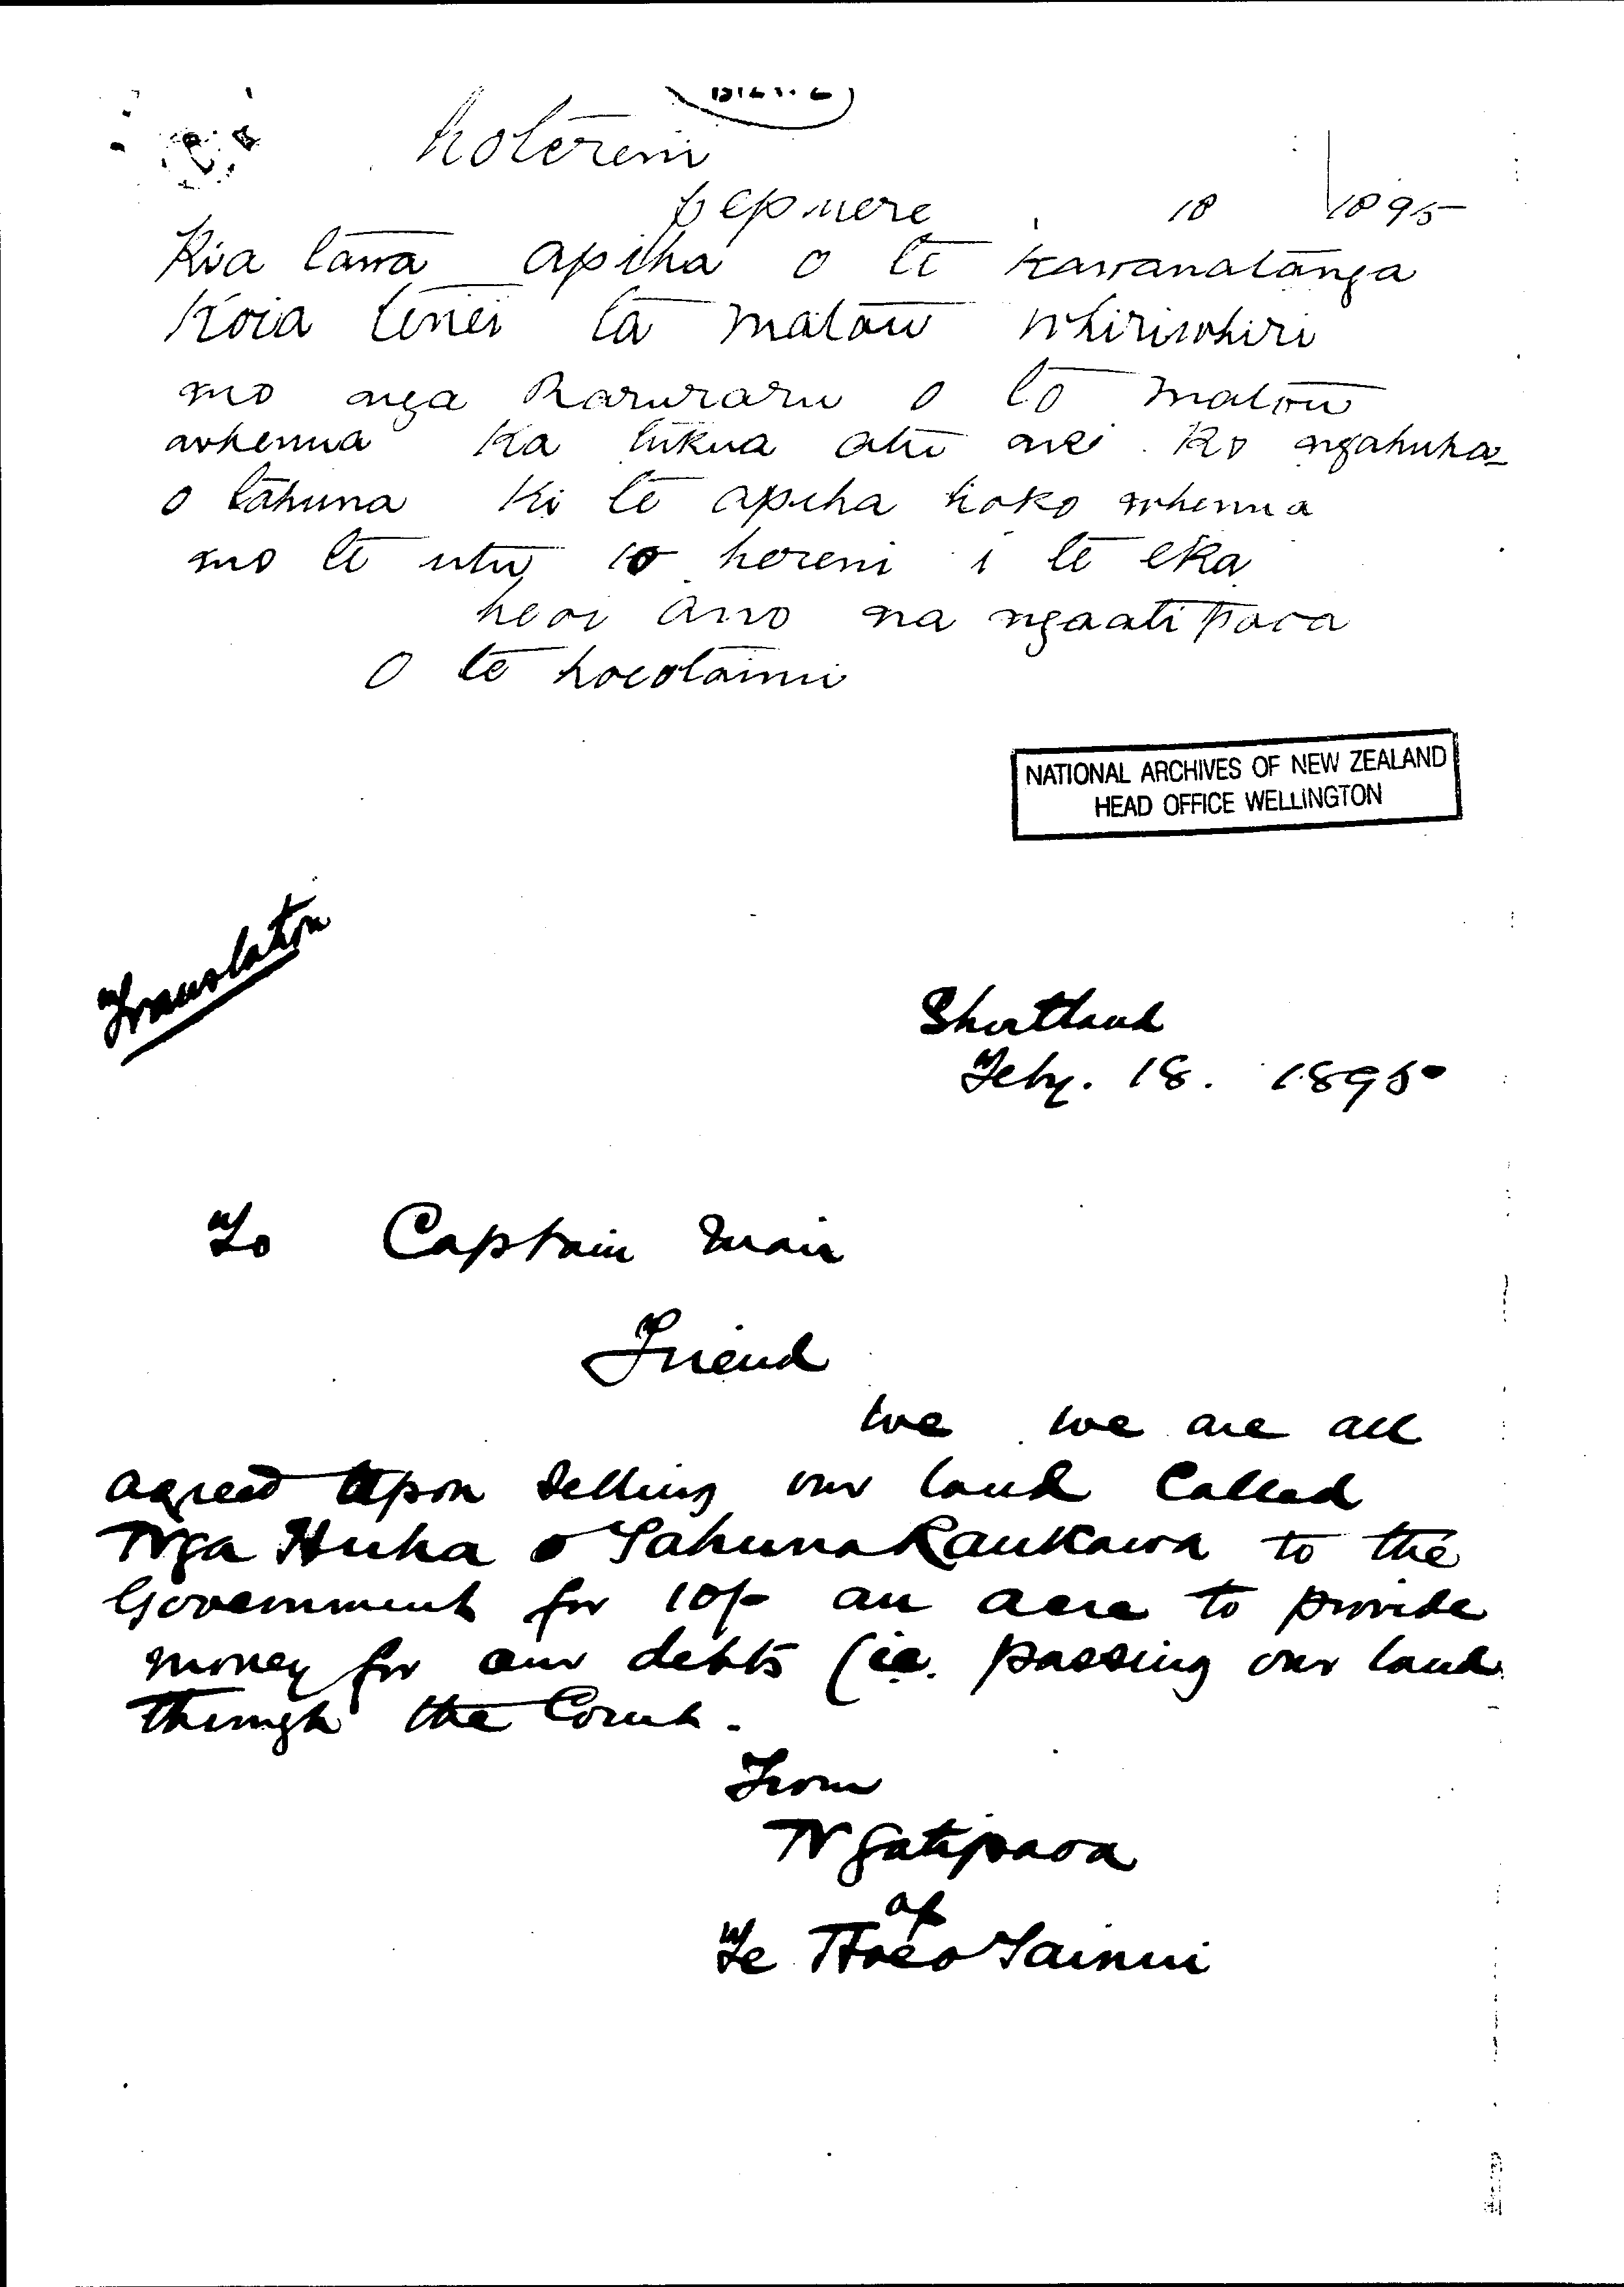 hotereni
pepuere 18 1895
Kia tawa apiha o te kawanatanga
Koia tenei ta matou whiriwhiri
mo nga Raruraru o to matou
whenua Ka tukua atu nei Ko ngahuha
o tahuna Ki te apiha hoko whenua
mo te utu 10 hereni i te eka
heoi ano na ngaati paoa
o te hoeotainui
NATIONAL ARCHIVES OF NEW ZEALAND
HEAD OFFICE WELLINGTON
Translation
Shortland
Feby. 18. 1895
To Captain Mair
Friend
We we are all
agreed upon selling our land Called
Nga Huha o Tahuna Raukawa to the
Government for 10/- an acre to provide
money for our debts (ie. passing our land
through the Court.
From
Ngatipaoa
of
Te Hoeo Tainui